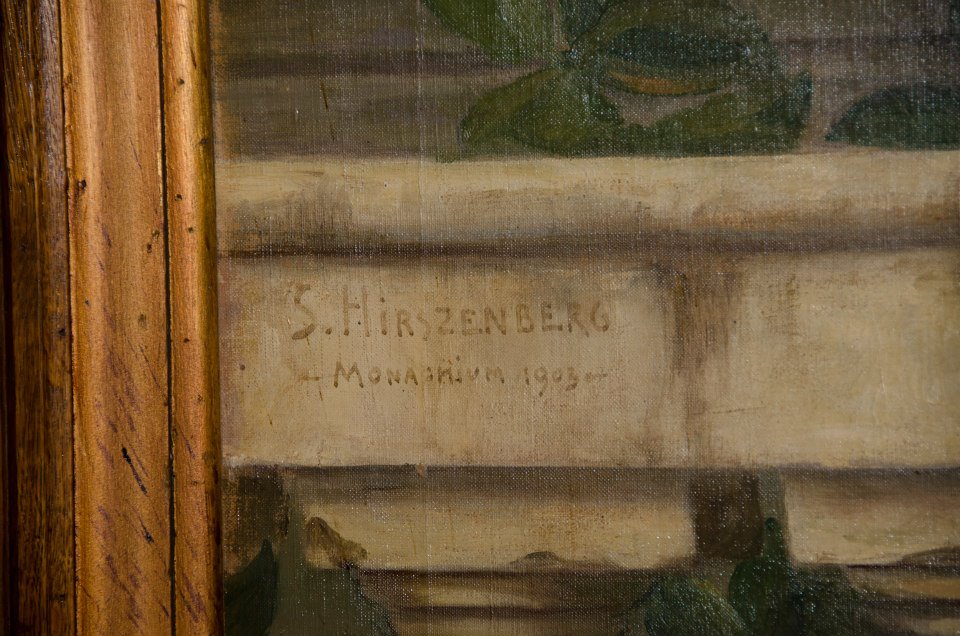 S. HIRSZENBERG
MONACHIUM 1903